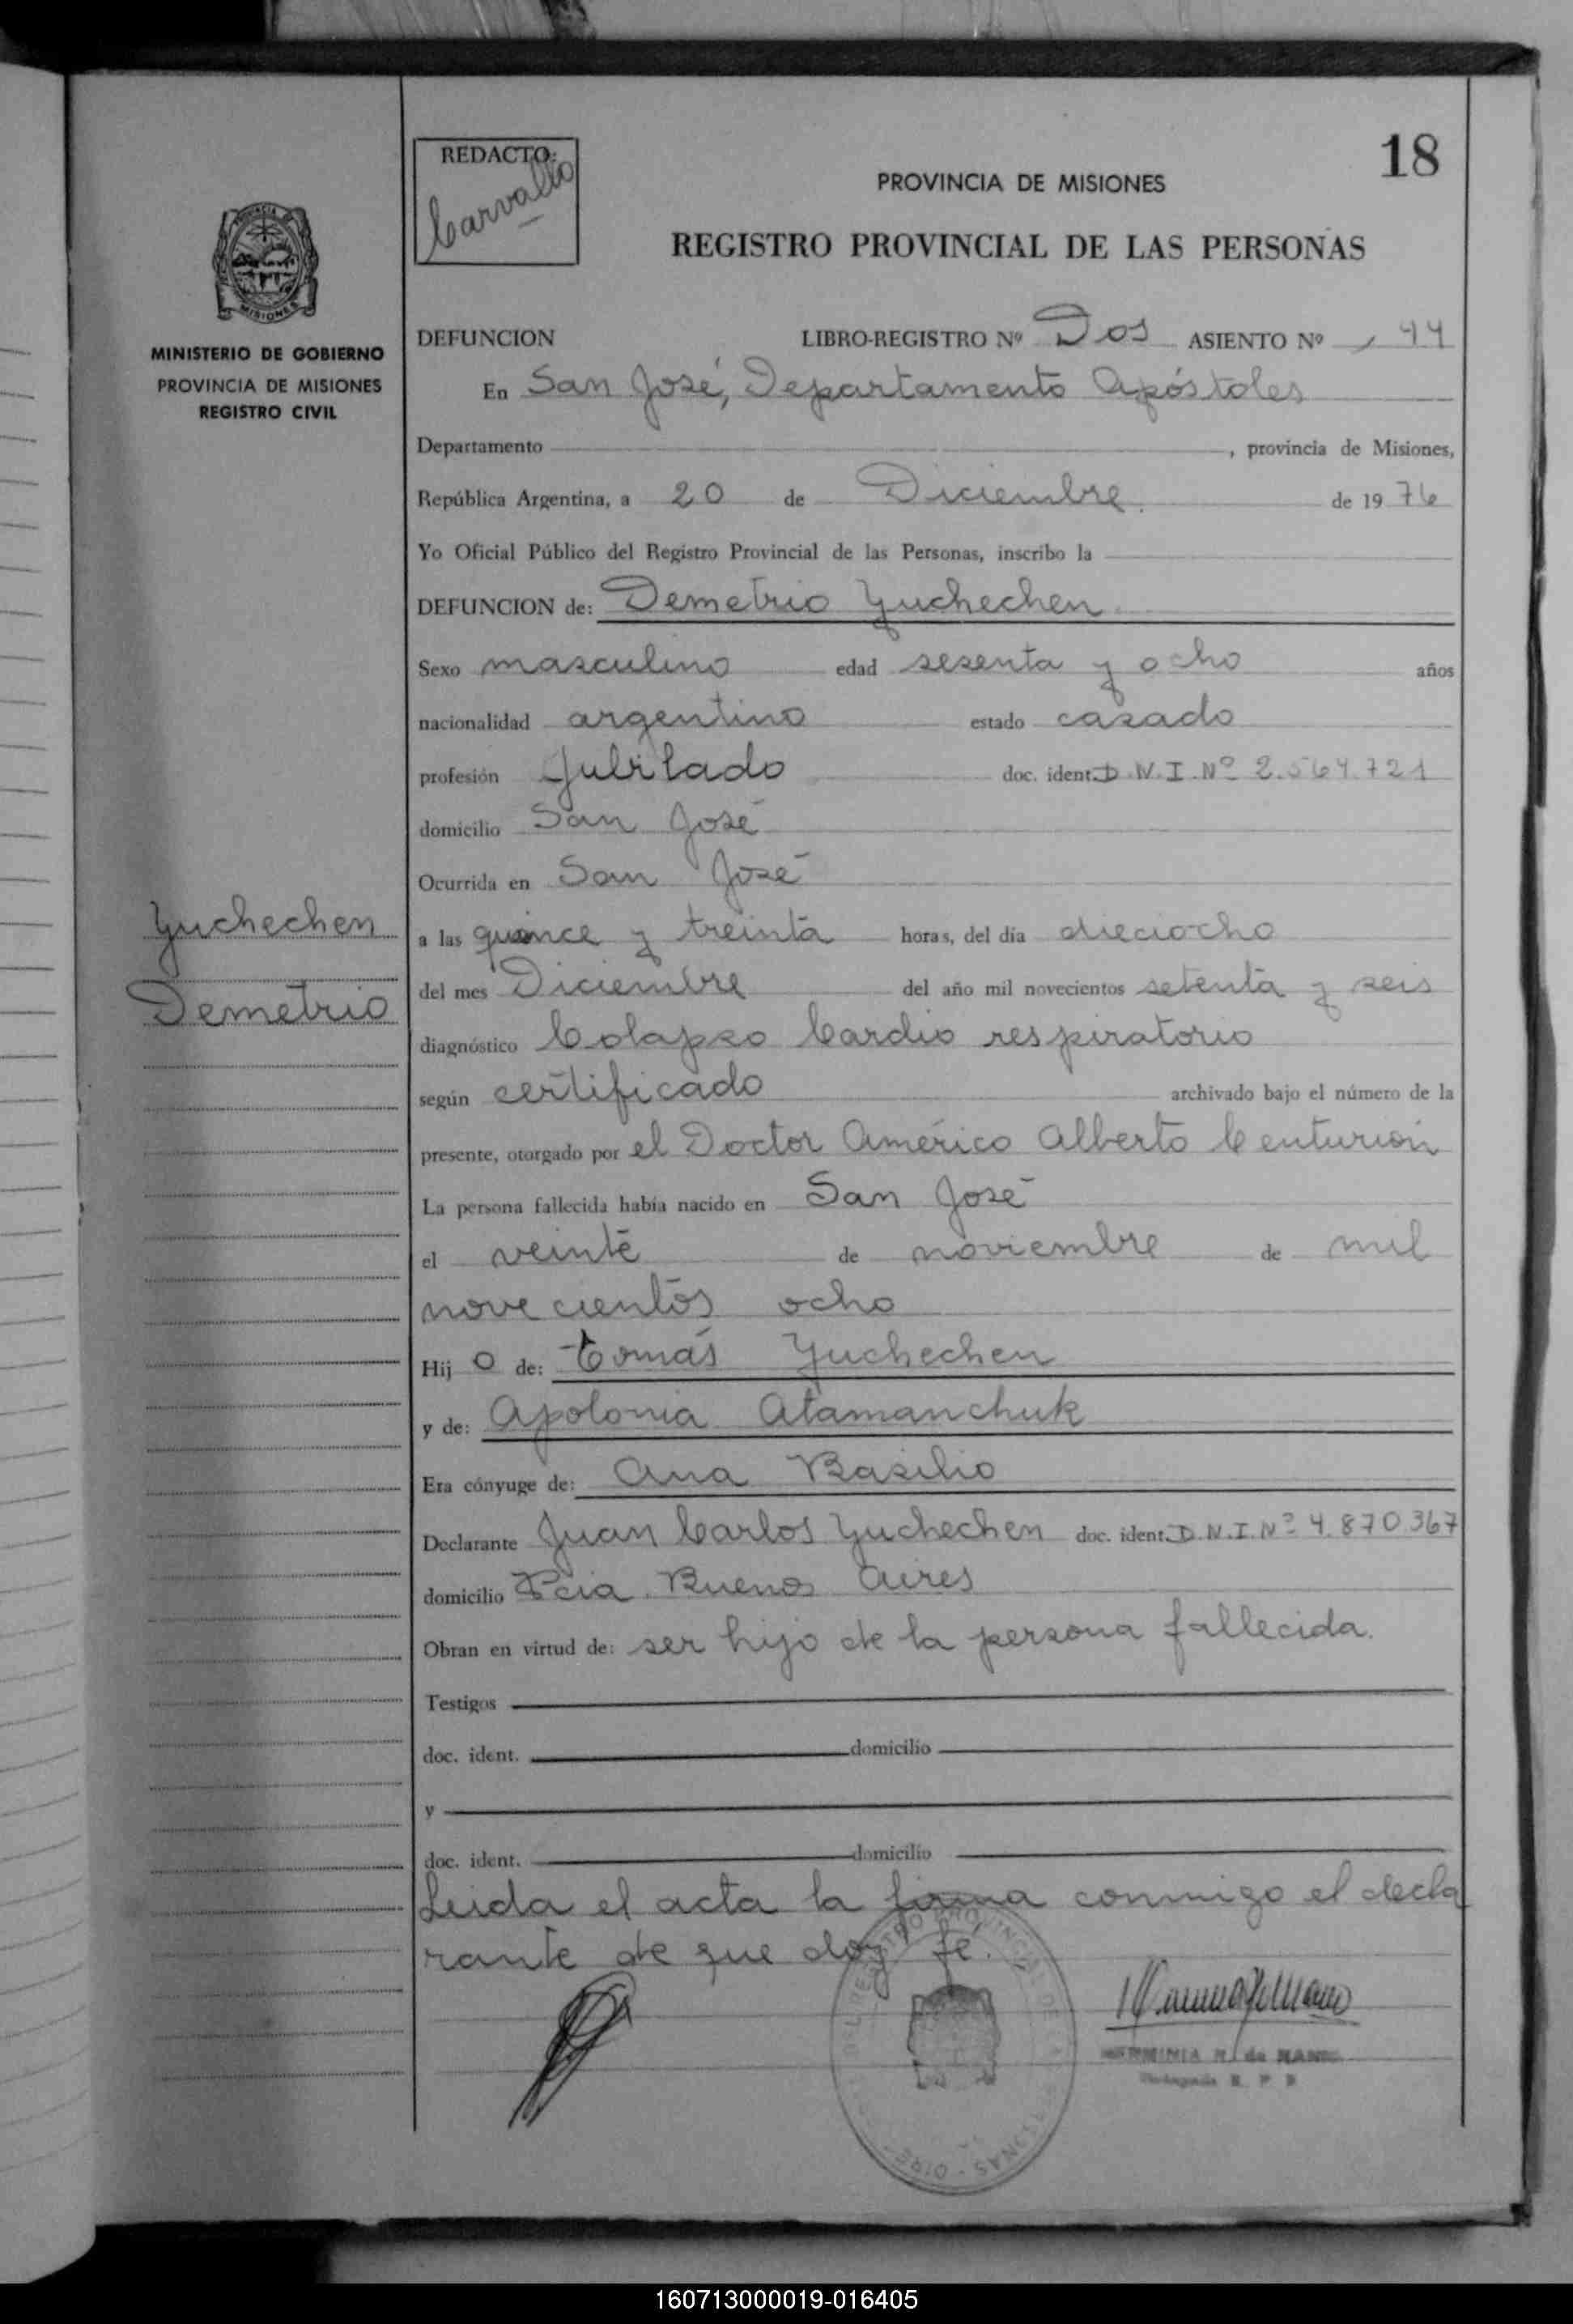 18
REDACTO:
Carvallo
PROVINCIA DE MISIONES
REGISTRO PROVINCIAL DE LAS PERSONAS
MISIONES
MINISTERIO DE GOBIERNO
PROVINCIA DE MISIONES
REGISTRO CIVIL
DEFUNCION LIBRO-REGISTRO Nº Dos ASIENTO Nº 44
En San José, Departamento Apóstoles
Departamento , provincia de Misiones,
República Argentina, a 20 de Diciembre. de 1976
Yo Oficial Público del Registro Provincial de las Personas, inscribo la
DEFUNCION de: Demetrio Yuchechen
Sexo masculino edad sesenta y ocho años
nacionalidad argentino estado casado
profesión Jubilado doc. ident. D.N.I. Nº 2.564.721
domicilio San José
Ocurrida en San José
Yuchechen
Demetrio
a las quince y treinta horas, del día dieciocho
del mes Diciembre del año mil novecientos setenta y seis
diagnóstico Colapso Cardio respiratorio
según certificado archivado bajo el número de la
presente, otorgado por el Doctor Américo Alberto Centurión
La persona fallecida había nacido en San José
el veinte de noviembre de mil
novecientos ocho
Hij o de: Tomás Yuchechen
y de: Apolonia Atamanchuk
Era cónyuge de: Ana Basilio
Declarante Juan Carlos Yuchechen doc. ident. D.N.I. Nº 4.870.367
domicilio Pcia. Buenos Aires
Obran en virtud de: ser hijo de la persona fallecida.
Testigos
doc. ident. domicilio
y
doc. ident. domicilio
Leida el acta la firma conmigo el decla
rante de que doy fé.
160713000019-016405